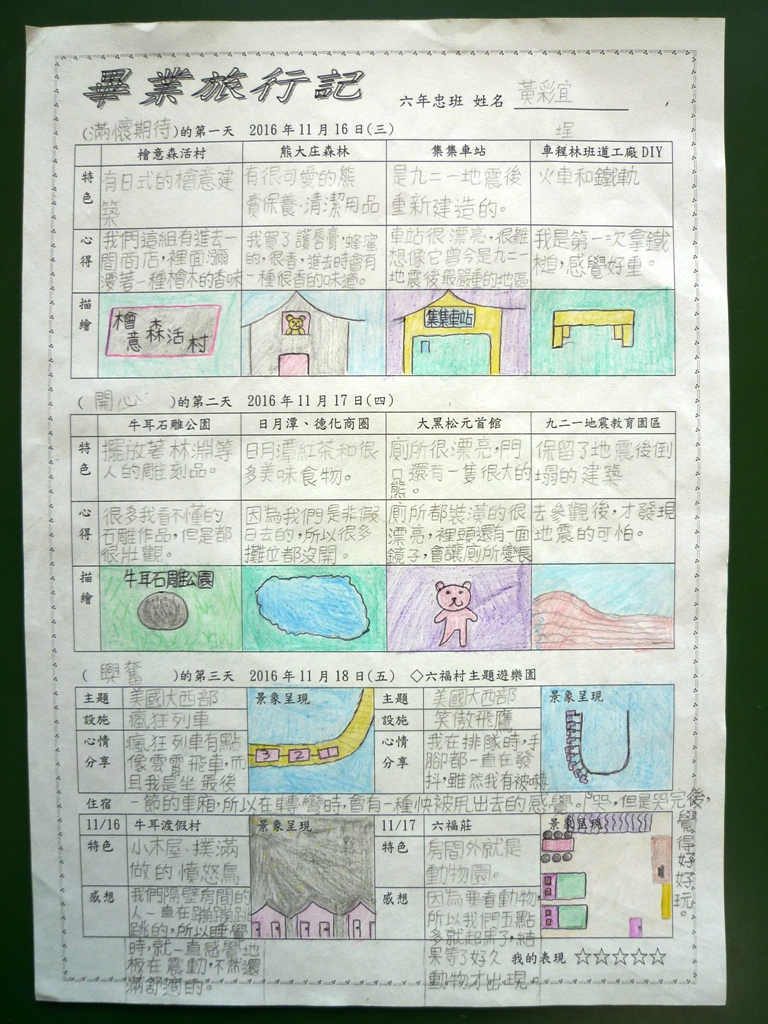 畢業旅行記
六年忠班 姓名 黃彩宜
(滿懷期待)的第一天 2016年11月16日(三)
埕
檜意森活村 熊大庄森林 集集車站 車程林班道工廠DIY
特色
有日式的檜意建
築
有很可愛的熊
賣保養、清潔用品
是九二一地震後
重新建造的。
火車和鐵軌
心得
我們這組有進去一
間商店,裡面瀰
漫著一種檜木的香味
我買了護唇膏,蜂蜜
的,很香,進去時會有
一種很香的味道。
車站很漂亮,很難
想像它曾今是九二一
地震後最嚴重的地區
我是第一次拿鐵
槌,感覺好重。
描繪
檜意森活村
集集車站
(開心)的第二天 2016年11月17日(四)
牛耳石雕公園 日月潭、德化商圈 大黑松元首館 九二一地震教育園區
特色
擺放著林淵等
人的雕刻品。
日月潭紅茶和很
多美味食物。
廁所很漂亮,門
口還有一隻很大的
熊。
保留了地震後倒
塌的建築
心得
很多我看不懂的
石雕作品,但是都
很壯觀。
因為我們是非假
日去的,所以很多
攤位都沒開。
廁所都裝潢的很
漂亮,裡頭還有一面
鏡子,會讓廁所變長
去參觀後,才發現
地震的可怕。
描繪
牛耳石雕公園
(興奮)的第三天 2016年11月18日(五) ◇六福村主題遊樂園
主題 美國大西部 景象呈現
設施 瘋狂列車
心情分享
瘋狂列車有點
像雲霄飛車,而
且我是坐最後
一節的車廂,所以在轉彎時,會有一種快被甩出去的感覺。
3 2 1
主題 美國大西部 景象呈現
設施 笑傲飛鷹
心情分享
我在排隊時,手
腳都一直在發
抖,雖然我有被嚇
哭,但是哭完後,
覺得好好玩。
住宿
11/16 牛耳渡假村 景象呈現
特色
小木屋、撲滿
做的憤怒鳥
感想
我們隔壁房間的
人一直在蹦蹦跳
跳的,所以睡覺
時,就一直感覺地
板在震動,不然還
滿舒適的。
11/17 六福莊 景象呈現
特色
房間外就是
動物園。
感想
因為要看動物,
所以我們五點
多就起床了,結
果等了好久
動物才出現。
我的表現 ☆☆☆☆☆